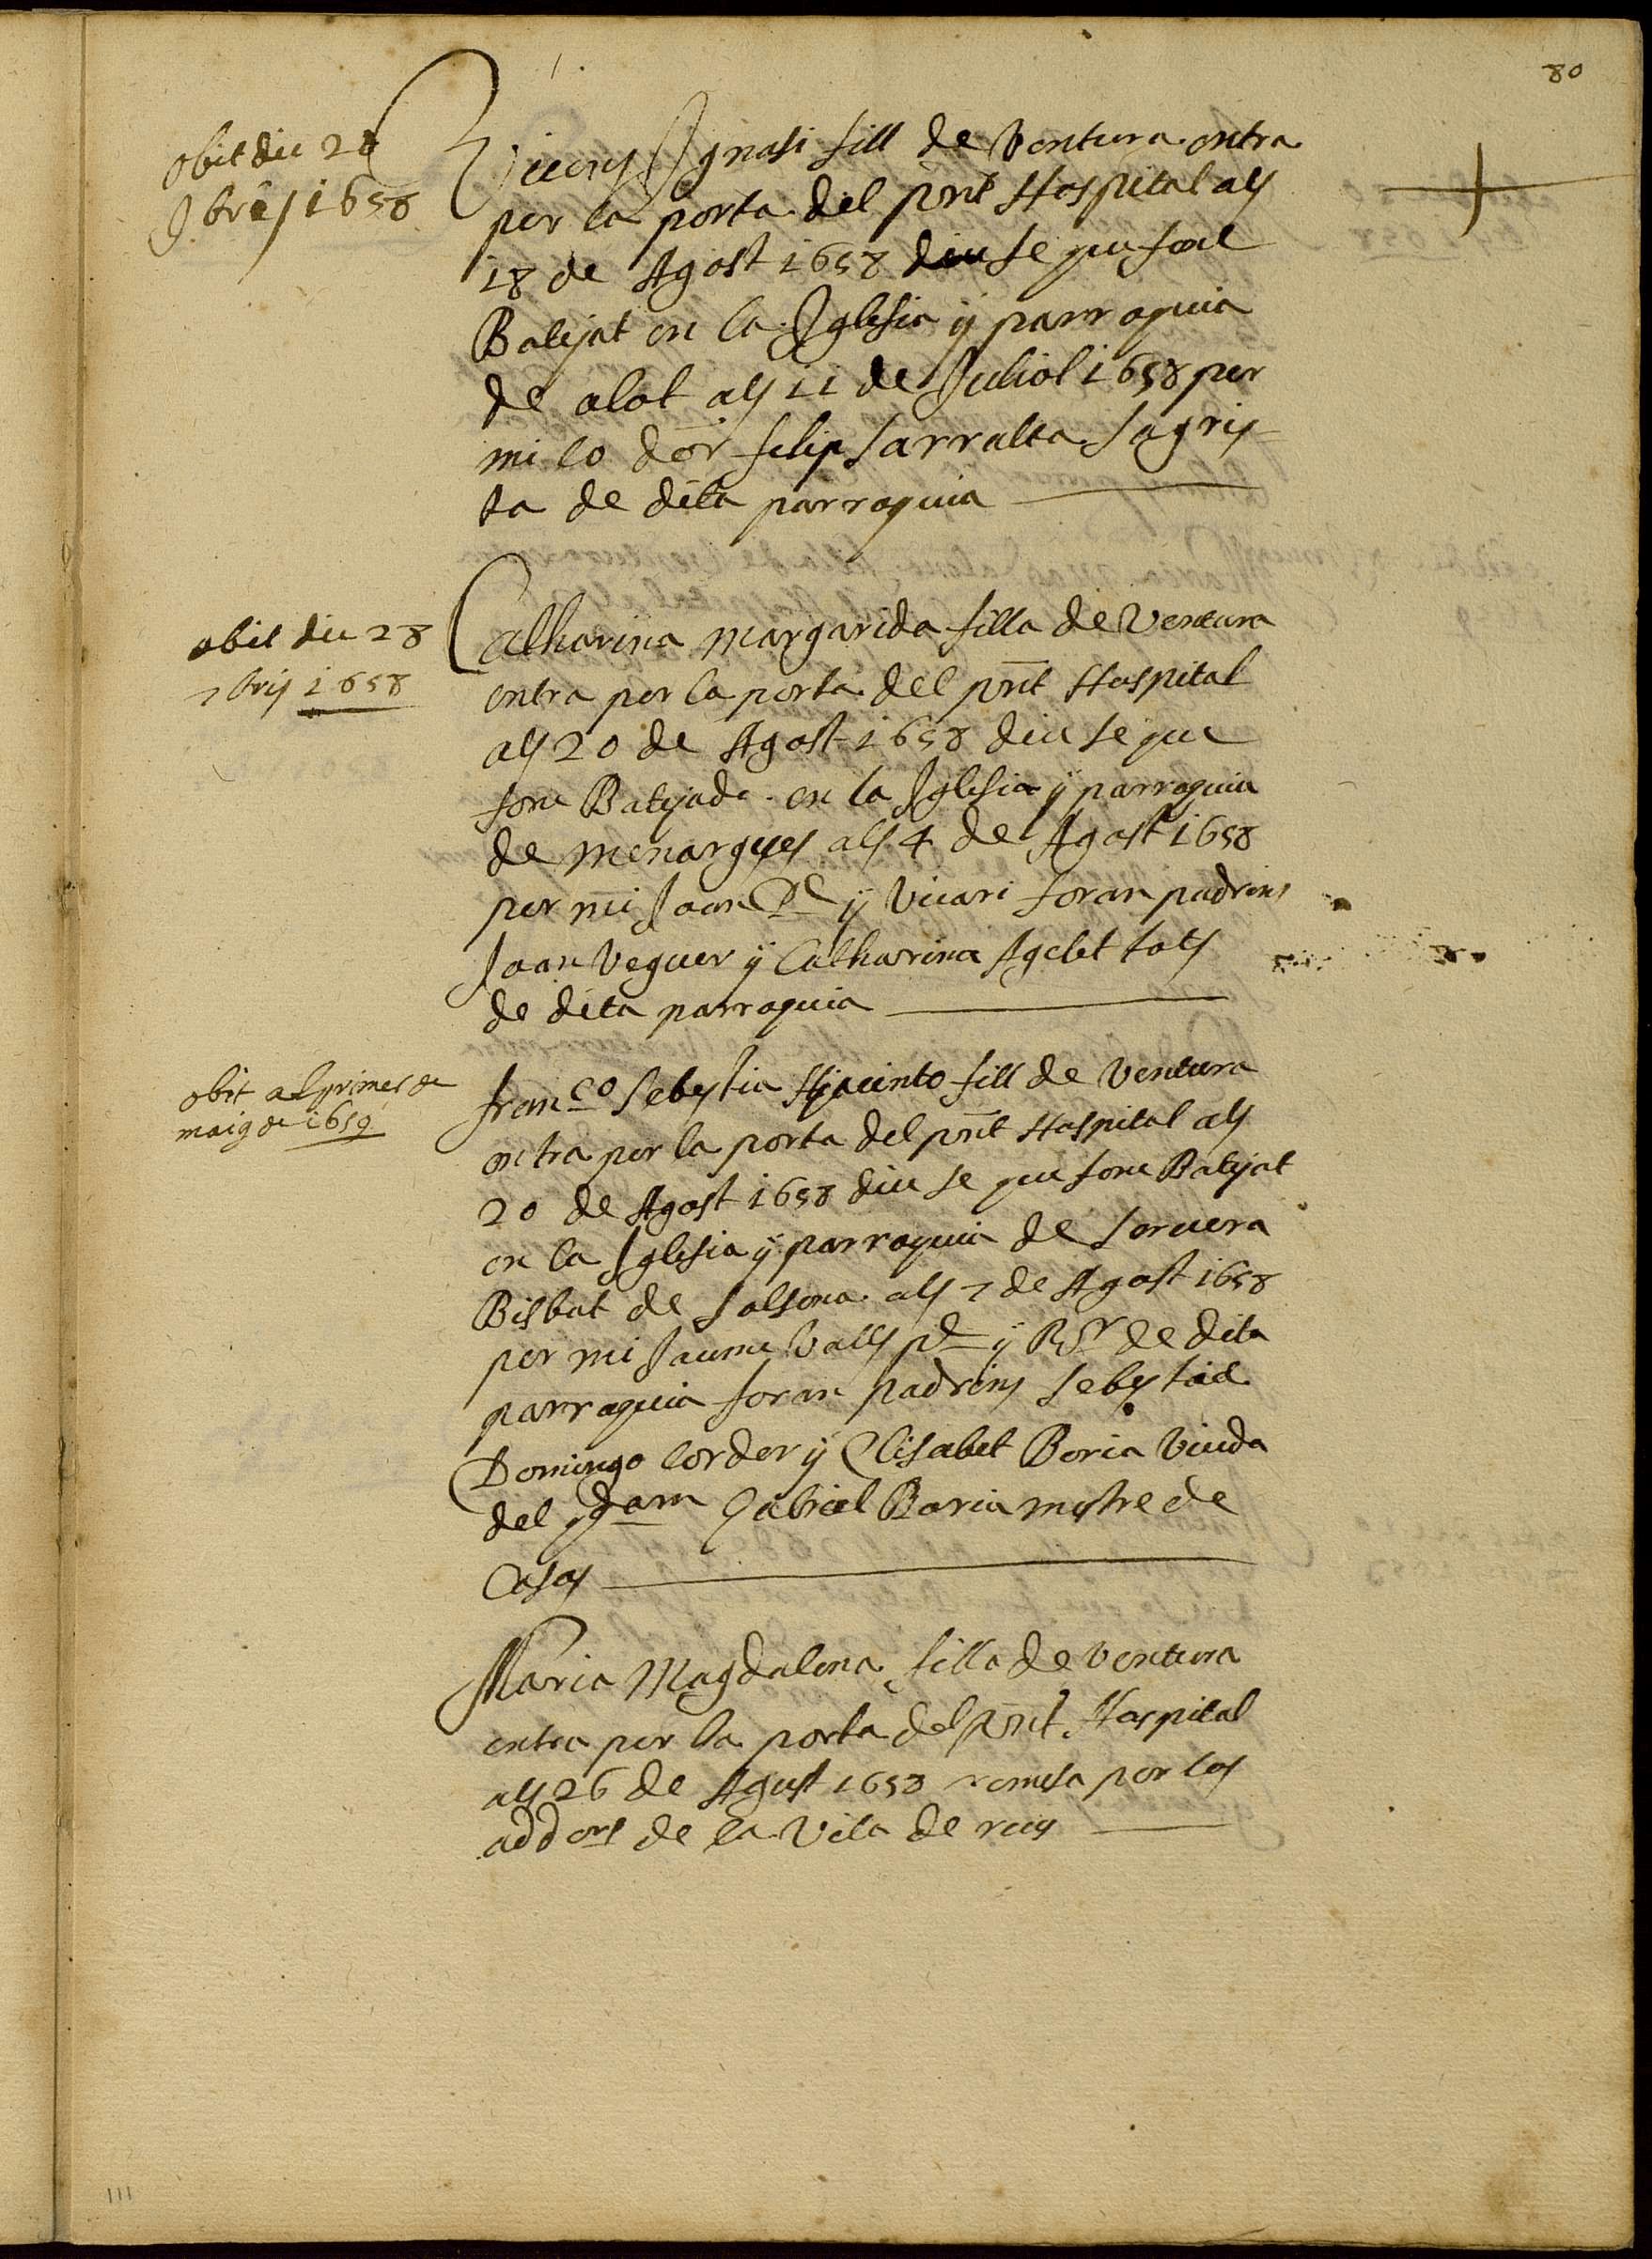 80
obit die 28
9bris 1658
Vicens Ignasi fill de Ventura entra
per la porta del pnt Hospital als
18 de Agost 1658 diu se que fone
Batejat en la Iglesia ÿ parroquia
de olot als 11 de Juliol 1658 per
mi lo dor felip Sarralta Sagris-
ta de dita parroquia
obit die 28
7bris 1658
Catharina Margarida filla de Ventura
entra per la porta del pnt Hospital
als 20 de Agost 1658 diu se que
fone Batejada en la Iglesia ÿ parroquia
de Menargues als 4 de Agost 1658
per mi Joan ÿ Vicari foran padrins
Joan Veguer ÿ Catharina Agelet tots
de dita parroquia
obit al primer de
maig de 1659
franco Sebestia Hjacinto fill de Ventura
entra per la porta del pnt Hospital als
20 de Agost 1658 diu se que fone Batejat
en la Iglesia ÿ parroquia de Servera
Bisbat de Solsona als 7 de Agost 1658
per mi Jaume Valls ÿ de dita
parroquia foran padrins Sebestia
Domingo Corder ÿ Elisabet Boria Viuda
del qdam Gabriel Boria mestre de
Casas
Maria Magdalena filla de Ventura
entra per la porta del pnt Hospital
als 26 de Agost 1658 remesa per los
addors de la Vila de reus
111